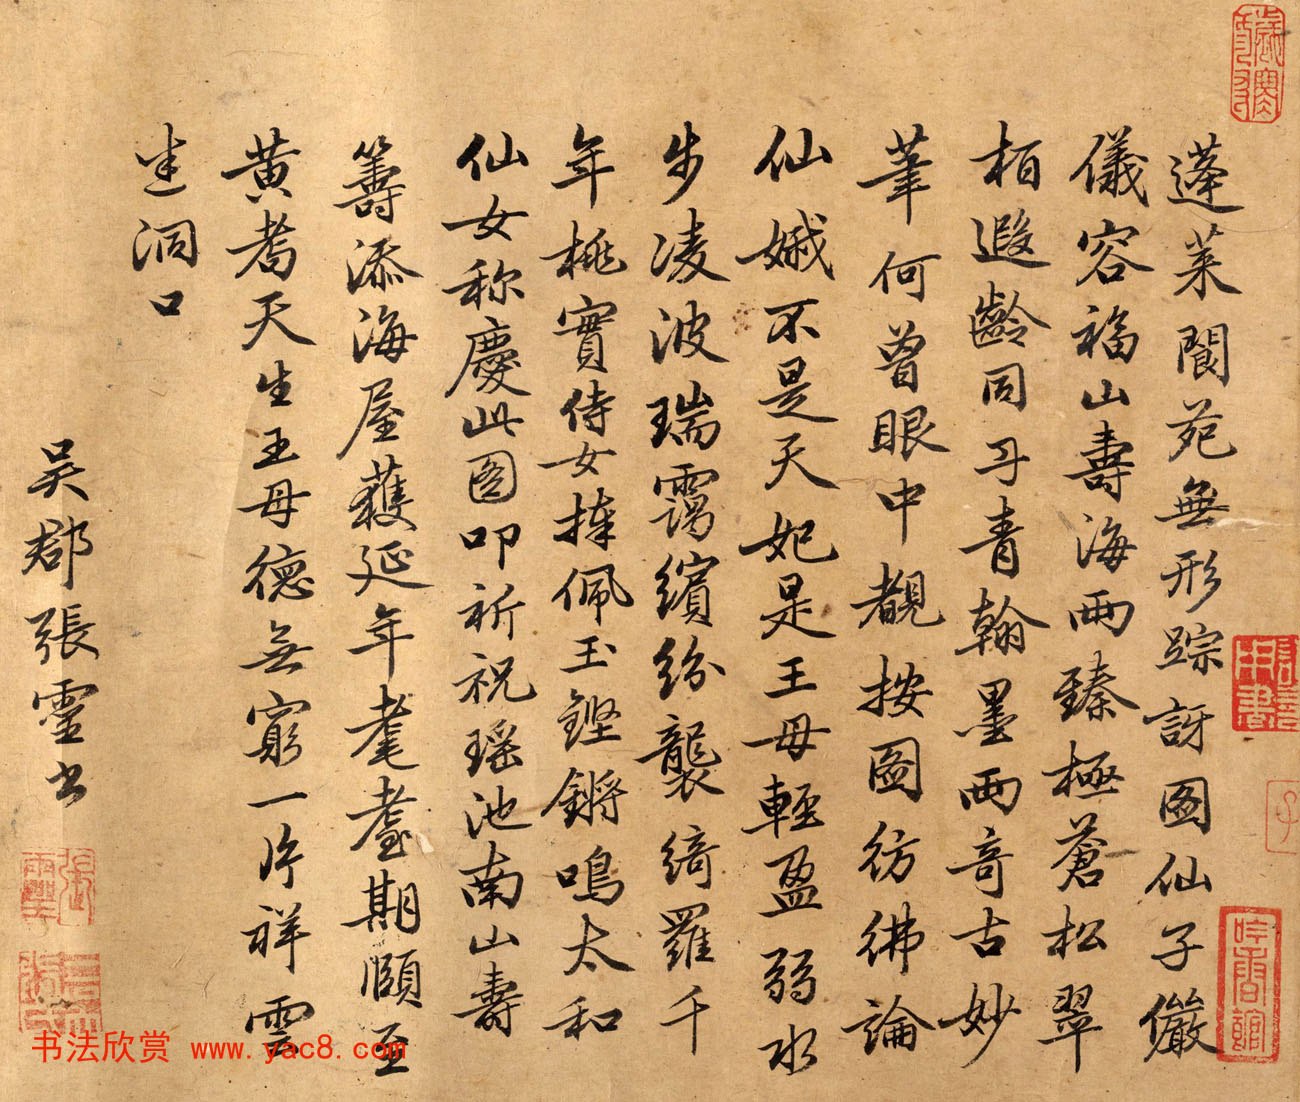 蓬萊閬苑無形踪訝圖仙子儼
儀容福山壽海兩臻極蒼松翠
栢遐齡同丹青翰墨兩奇古妙
筆何曾眼中覩按圖彷彿論
仙娥不是天妃是王母輕盈弱水
步凌波瑞靄繽紛襲綺羅千
年桃實侍女捧佩玉鏗鏘鳴太和
仙女称慶此圖叩祈祝瑶池南山壽
籌添海屋獲延年耄耋期頤至
黃耇天生王母德無窮一片祥雲
迷洞口
吳郡張靈書
張靈
吟香館
书法欣赏 www.yac8.com